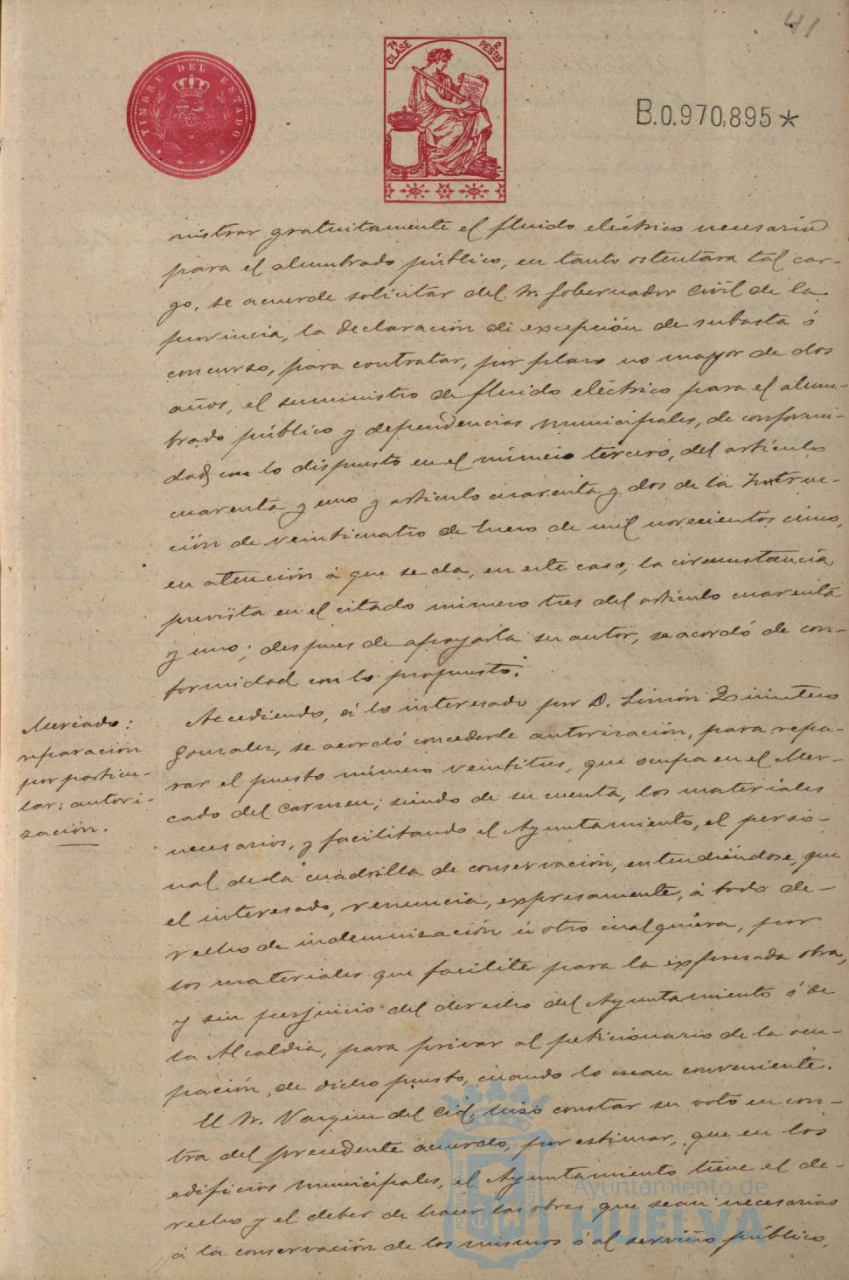 41
TIMBRE DEL ESTADO
7ª CLASE
2 PESTAS
B.0.970.895*
nistrar gratuitamente el fluido eléctrico necesario
para el alumbrado público, en tanto ostentara tal car-
go, se acuerde solicitar del Sr. Gobernador Civil de la
provincia, la declaración de excepción de subasta ó
concurso, para contratar, por plazo no mayor de dos
años, el suministro de fluido eléctrico para el alum-
brado público y dependencias municipales, de conformi-
dad con lo dispuesto en el número tercero, del artículo
cuarenta y uno y artículo cuarenta y dos de la Instruc-
ción de veinticuatro de Enero de mil novecientos cinco,
en atención á que se da, en este caso, la circunstancia
prevista en el citado número tres del artículo cuarenta
y uno; despues de apoyarla su autor, se acordó de con-
formidad con lo propuesto.
Mercado:
reparación
por particu-
lar: autori-
zación.
Accediendo, á lo interesado por D. Simón Quintero
Gonzalez, se acordó concederle autorización, para repa-
rar el puesto número veintitres, que ocupa en el Mer-
cado del Carmen; siendo de su cuenta, los materiales
necesarios, y facilitando el Ayuntamiento, el perso-
nal de la cuadrilla de conservación, entendiéndose, que
el interesado, renuncia, expresamente, á todo de-
recho de indemnización ú otro cualquiera, por
los materiales que facilite para la expresada obra,
y sin perjuicio del derecho del Ayuntamiento ó de
la Alcaldia, para privar al peticionario de la ocu-
pación, de dicho puesto, cuando lo crean conveniente.
El Sr. del Cid, hizo constar su voto en con-
tra del precedente acuerdo, por estimar, que en los
edificios municipales, el Ayuntamiento tiene el de-
recho y el deber de hacer las obras que sean necesarias
á la conservación de los mismos ó al servicio público,
Ayuntamiento de
HUELVA